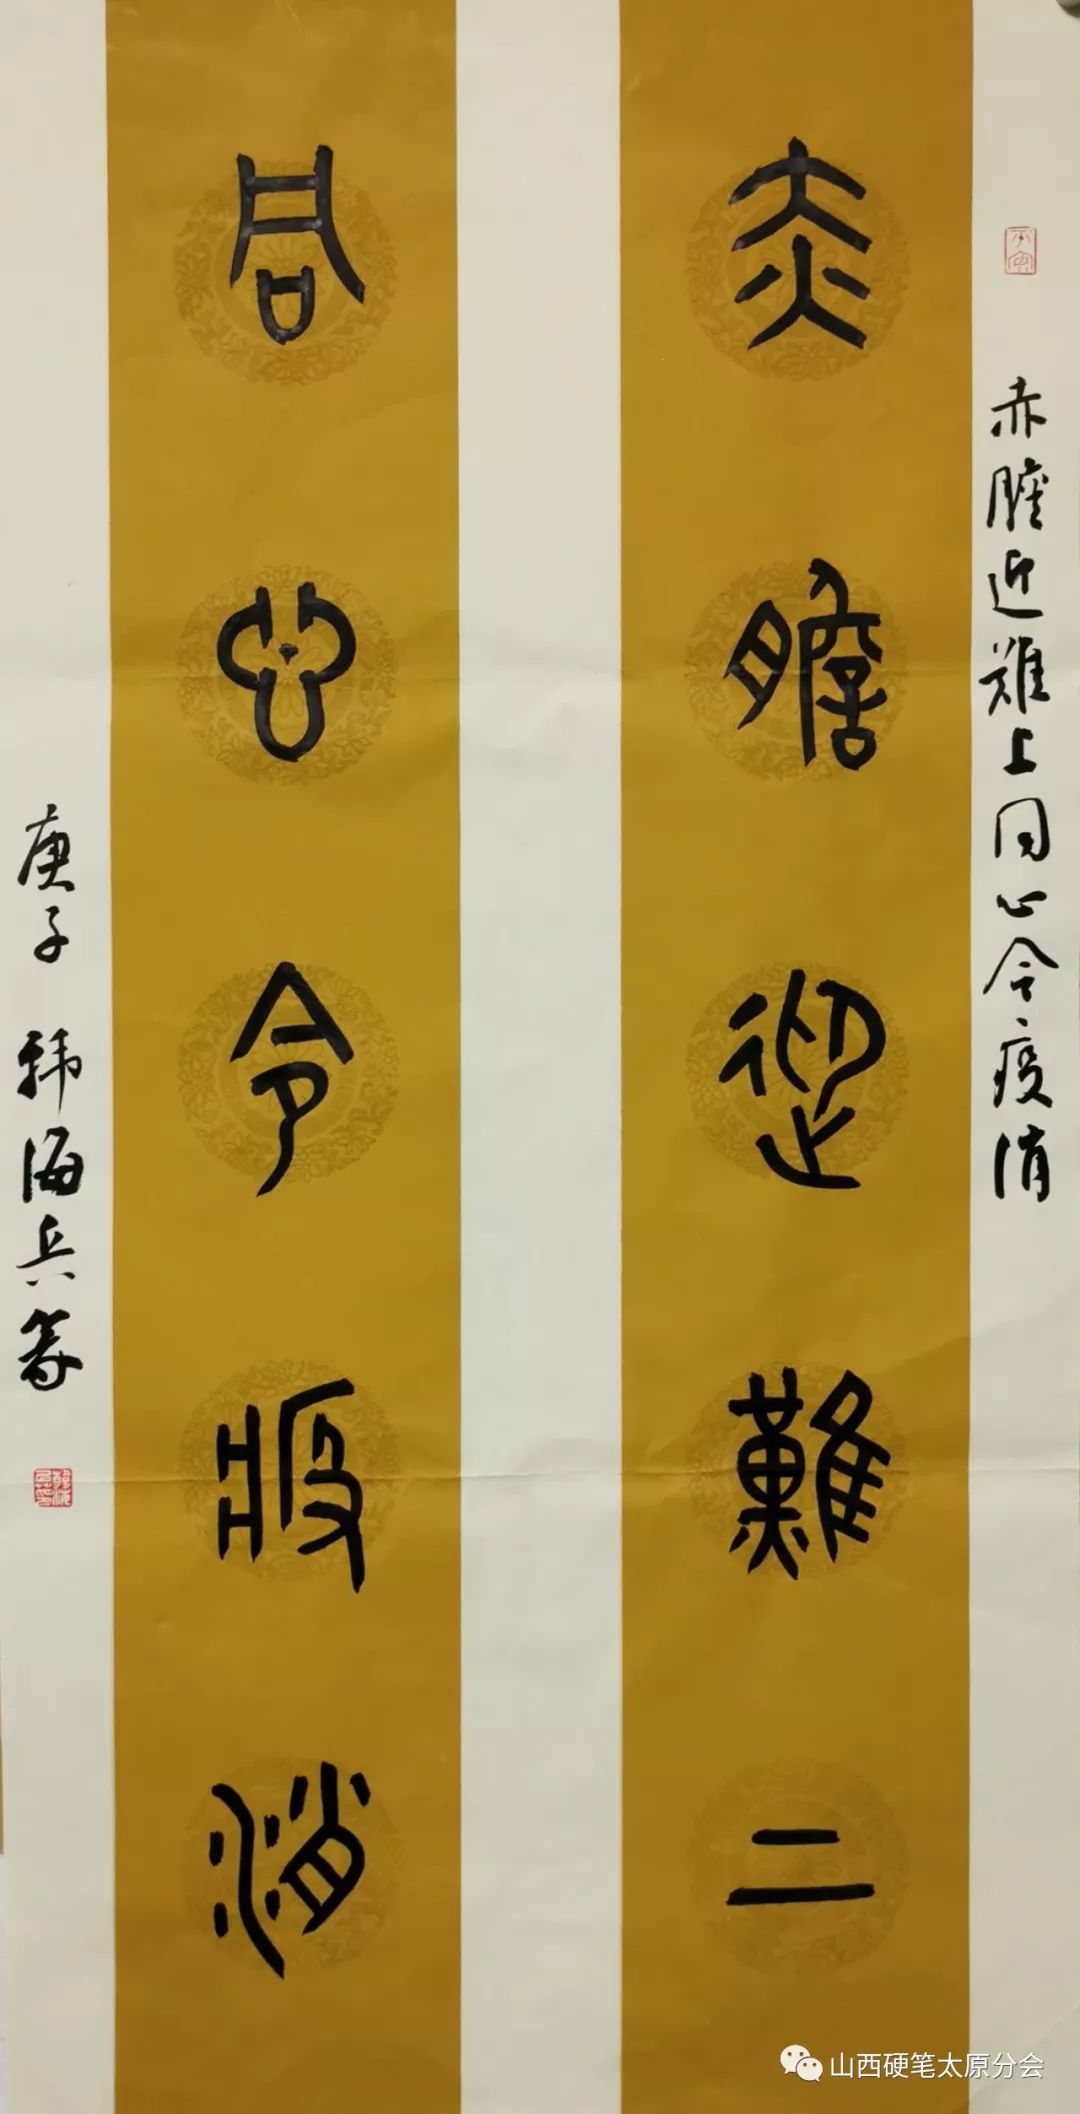 赤膽迎難上同心令疫消
赤膽迎難上
同心令疫消
庚子 韩海兵篆
山西硬笔太原分会